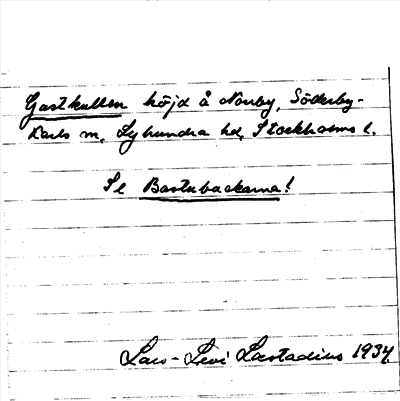 Gastkullen höjd å Norrby, Söderby-
Karls sn, Lyhundra hd, Stockholms l.
Se Bastubackarna!
Lars-Levi Læstadius 1934